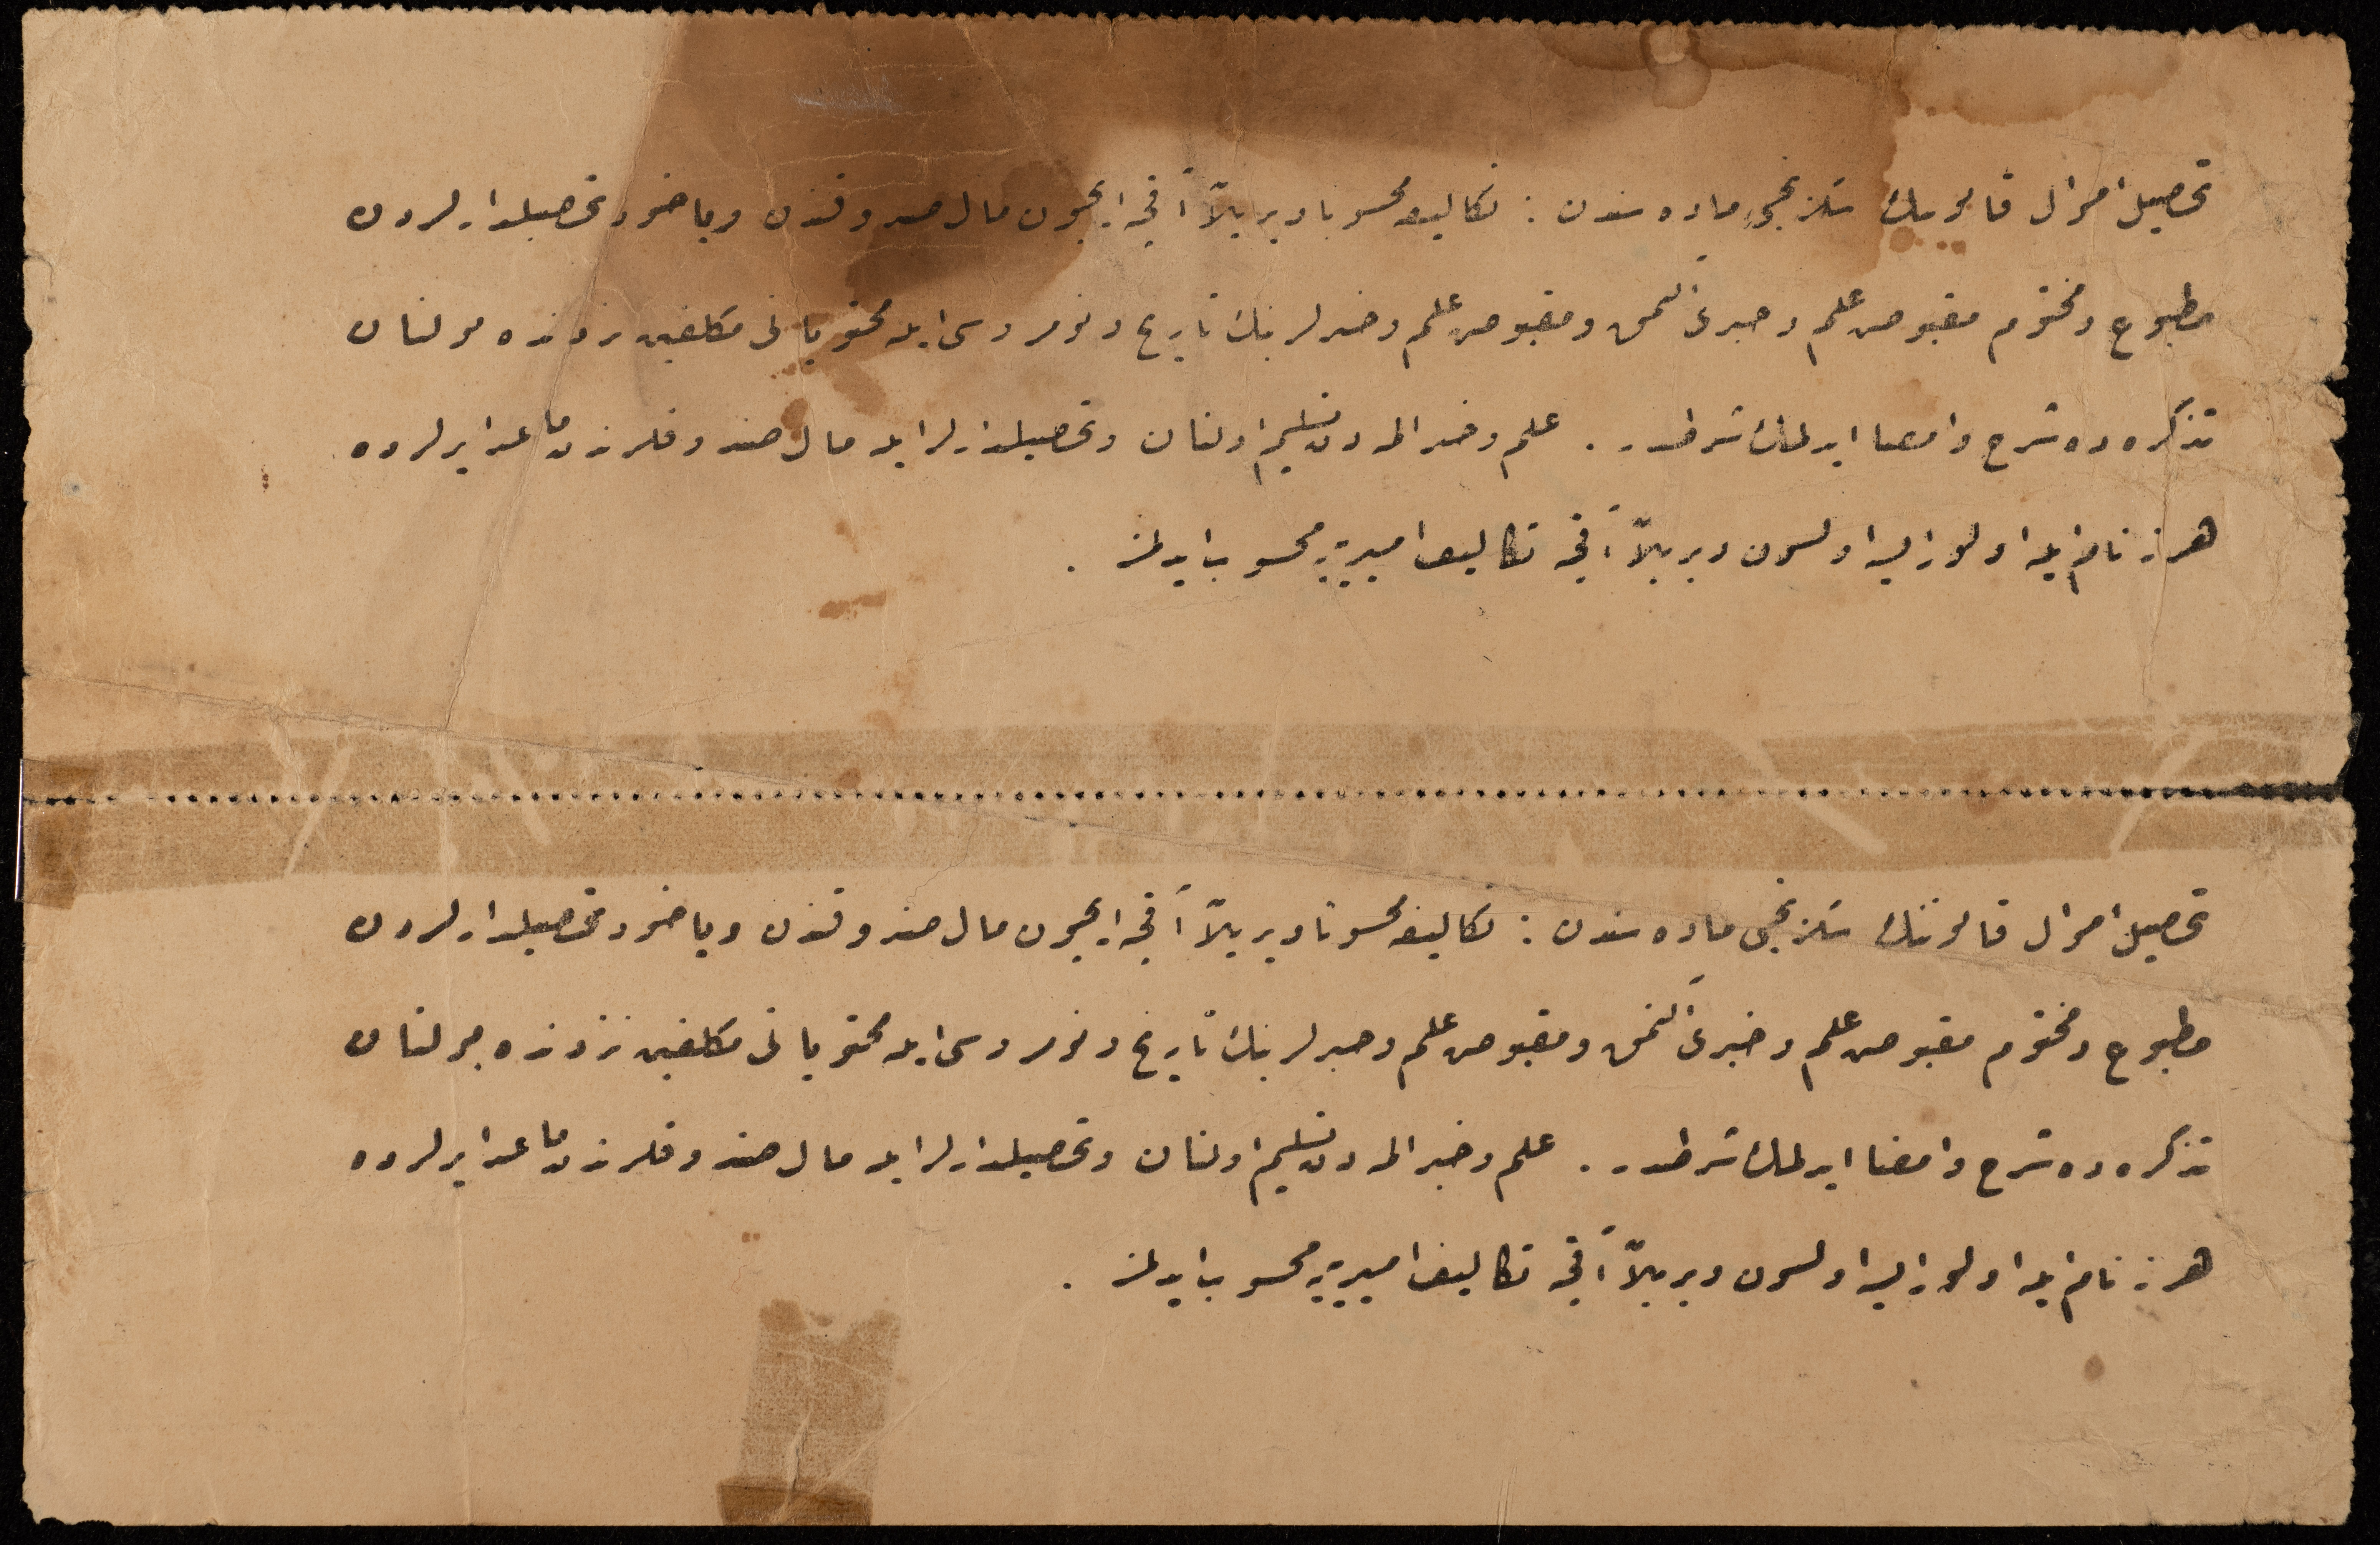 تحصیل اموال قانوننك سكزنجی ماده سندن : تكالیفه محسوبا ویریلان آقچه ایچون مال صندوقندن ویاخود تحصیلدارلردن
مطبوع ومختوم مقبوض علم وخبری آلنمق ومقبوض علم وخبرلرینك تاریخ ونومروسی ایله محتویاتی مكلفین نزدنده بولنان
تذكره ده شرح وامضا ایدلمك شرطدر . علم وخبر المه دن تسلیم اولنان وتحصیلدارلر ایله مال صندوقلرندن ماعدا یرلرده
هر نه نام ایله اولورایسه اولسون ویریلان آقچه تكالیف امیریه یه محسوب ایدلمز .
تحصیل اموال قانوننك سكزنجی ماده سندن : تكالیفه محسوبا ویریلان آقچه ایچون مال صندوقندن ویاخود تحصیلدارلردن
مطبوع ومختوم مقبوض علم وخبری آلنمق ومقبوض علم وخبرلرینك تاریخ ونومروسی ایله محتویاتی مكلفین نزدنده بولنان
تذكره ده شرح وامضا ایدلمك شرطدر . علم وخبر المه دن تسلیم اولنان وتحصیلدارلر ایله مال صندوقلرندن ماعدا یرلرده
هر نه نام ایله اولورایسه اولسون ویریلان آقچه تكالیف امیریه یه محسوب ایدلمز .